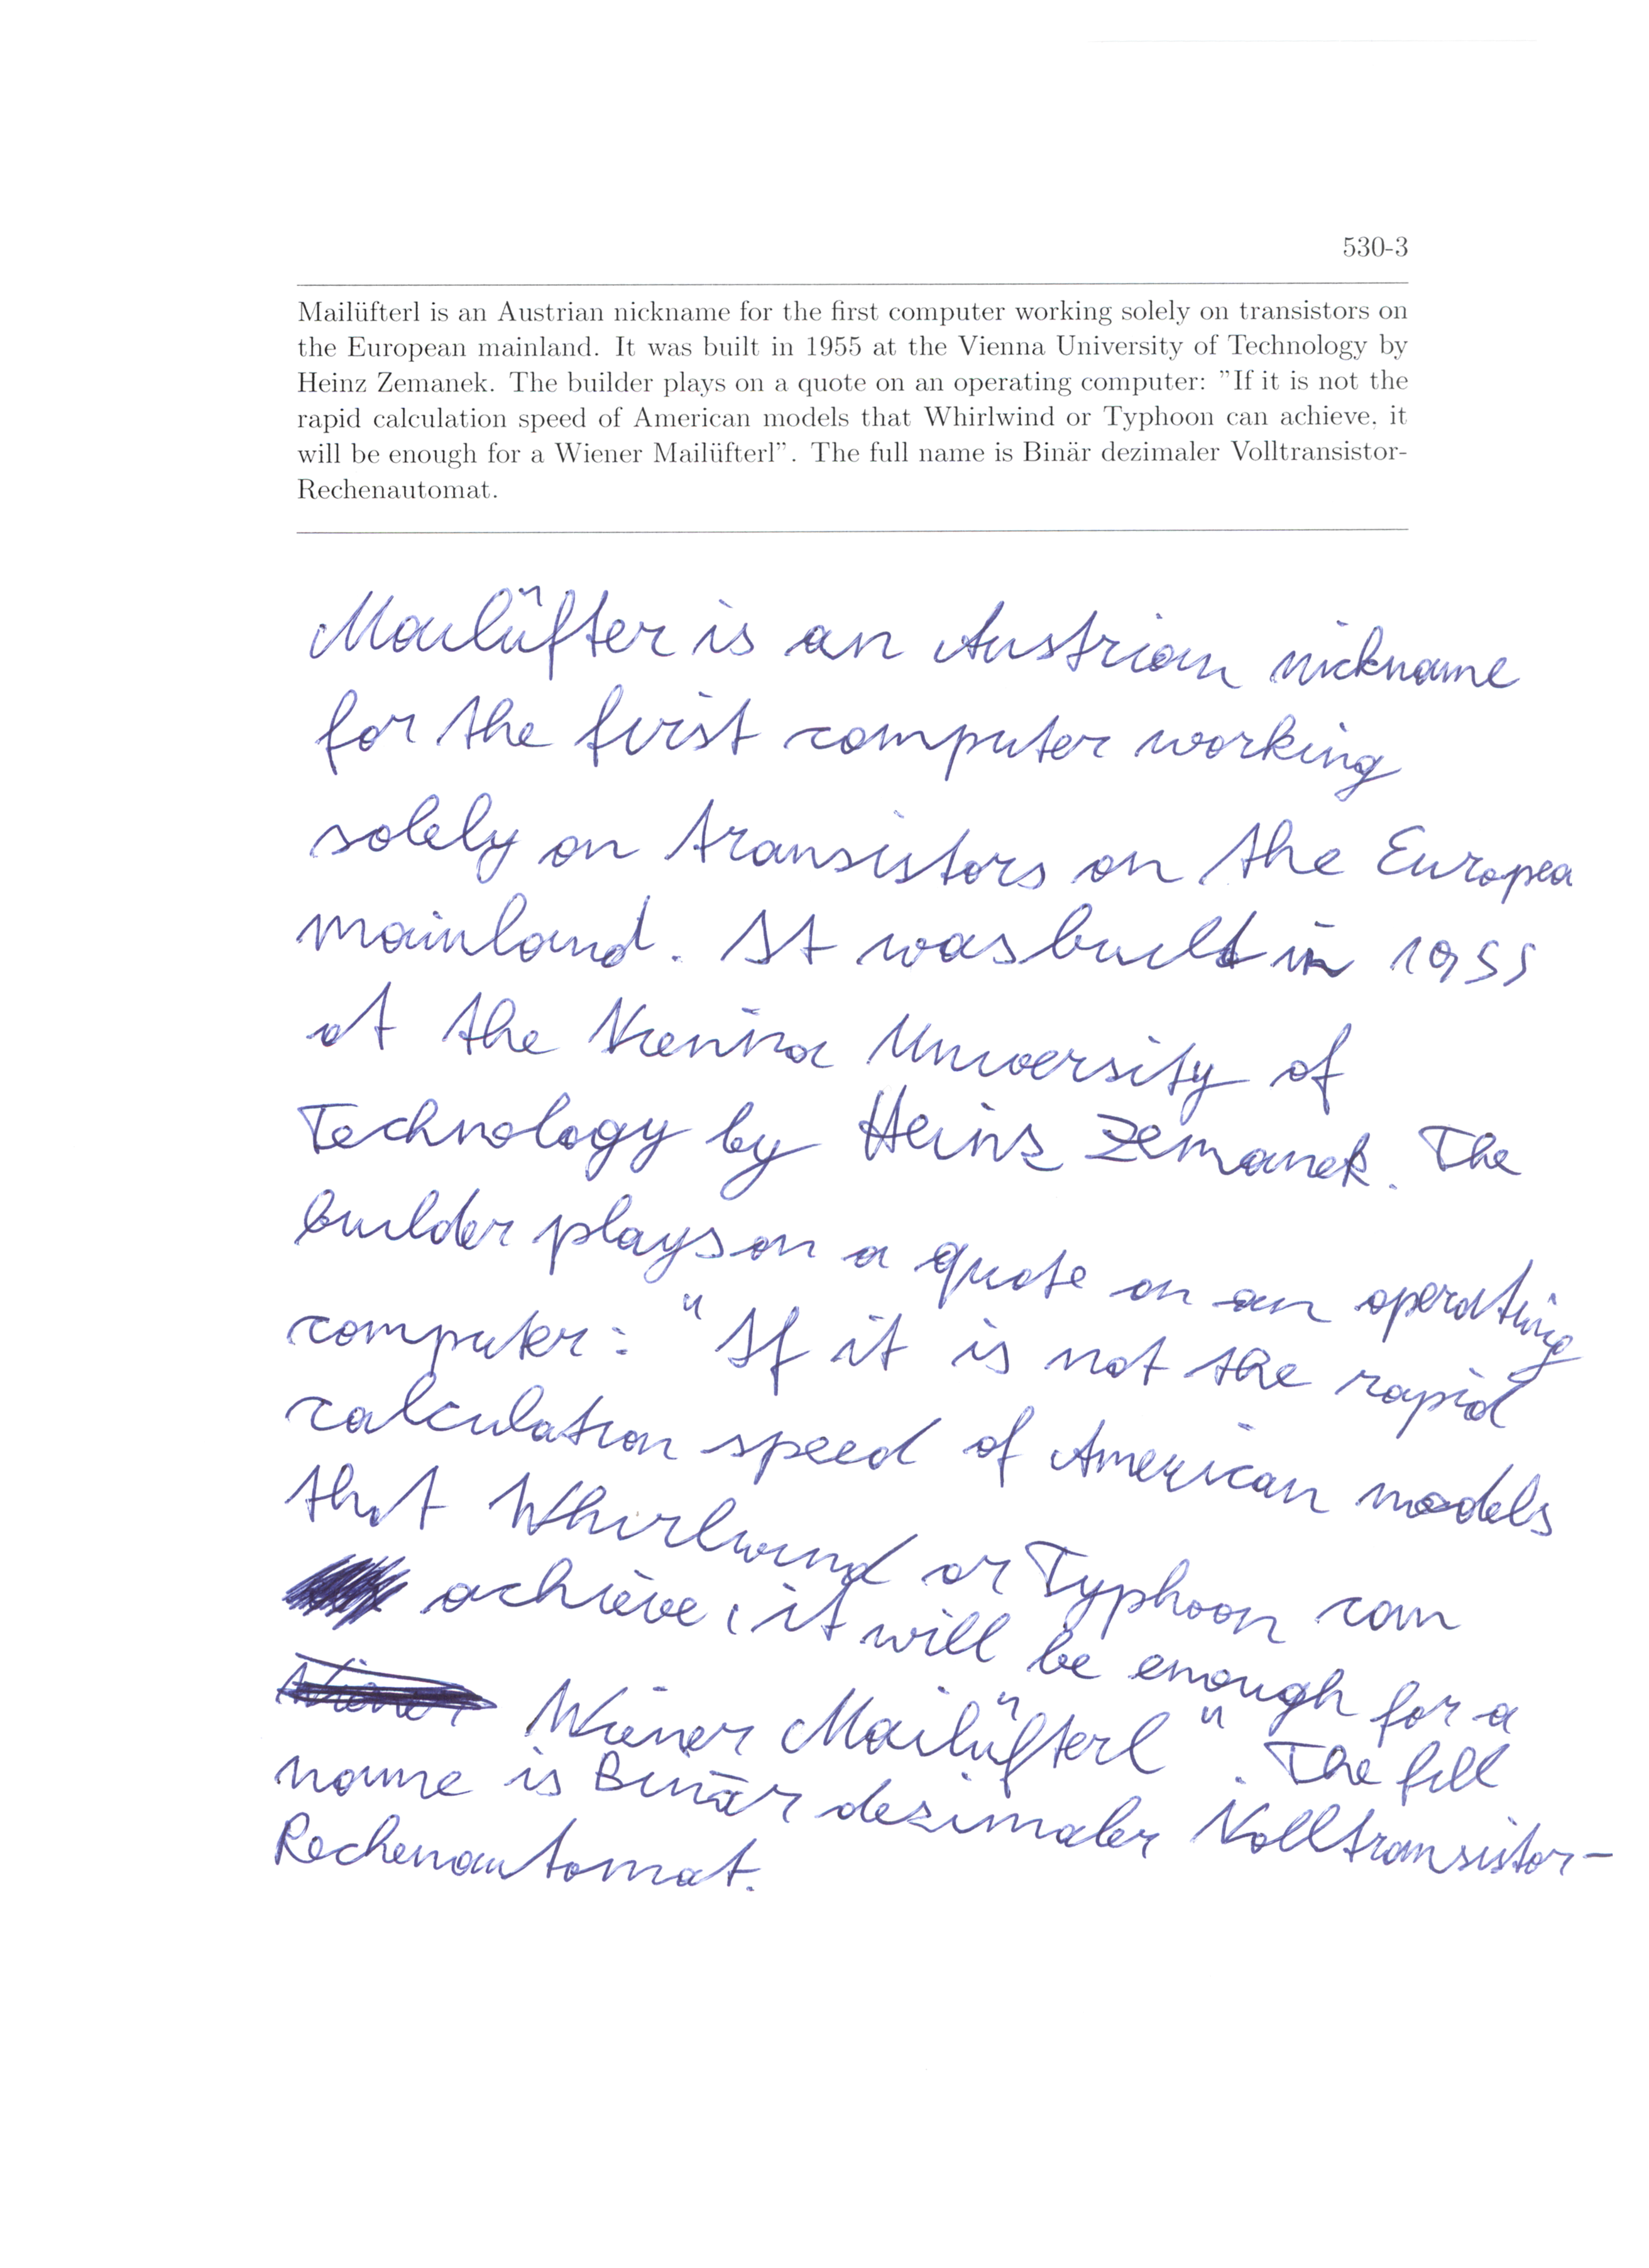 530-3
Mailüfterl is an Austrian nickname for the first computer working solely on transistors on
the European mainland. It was built in 1955 at the Vienna University of Technology by
Heinz Zemanek. The builder plays on a quote on an operating computer: "If it is not the
rapid calculation speed of American models that Whirlwind or Typhoon can achieve, it
will be enough for a Wiener Mailüfterl". The full name is Binär dezimaler Volltransistor-
Rechenautomat.
Mailüfter is an Austrian nickname
for the first computer working
solely on transistors on the Europea
mainland. It was built in 1955
at the Vienna University of
Technology by Heinz Zemanek. The
builder plays on a quote on an operating
computer: "If it is not the rapid
calculation speed of American models
that Whirlwind or Typhoon can
achieve, it will be enough for a
Wiener Mailüfterl". The full
name is Binär dezimaler Volltransistor-
Rechenautomat.